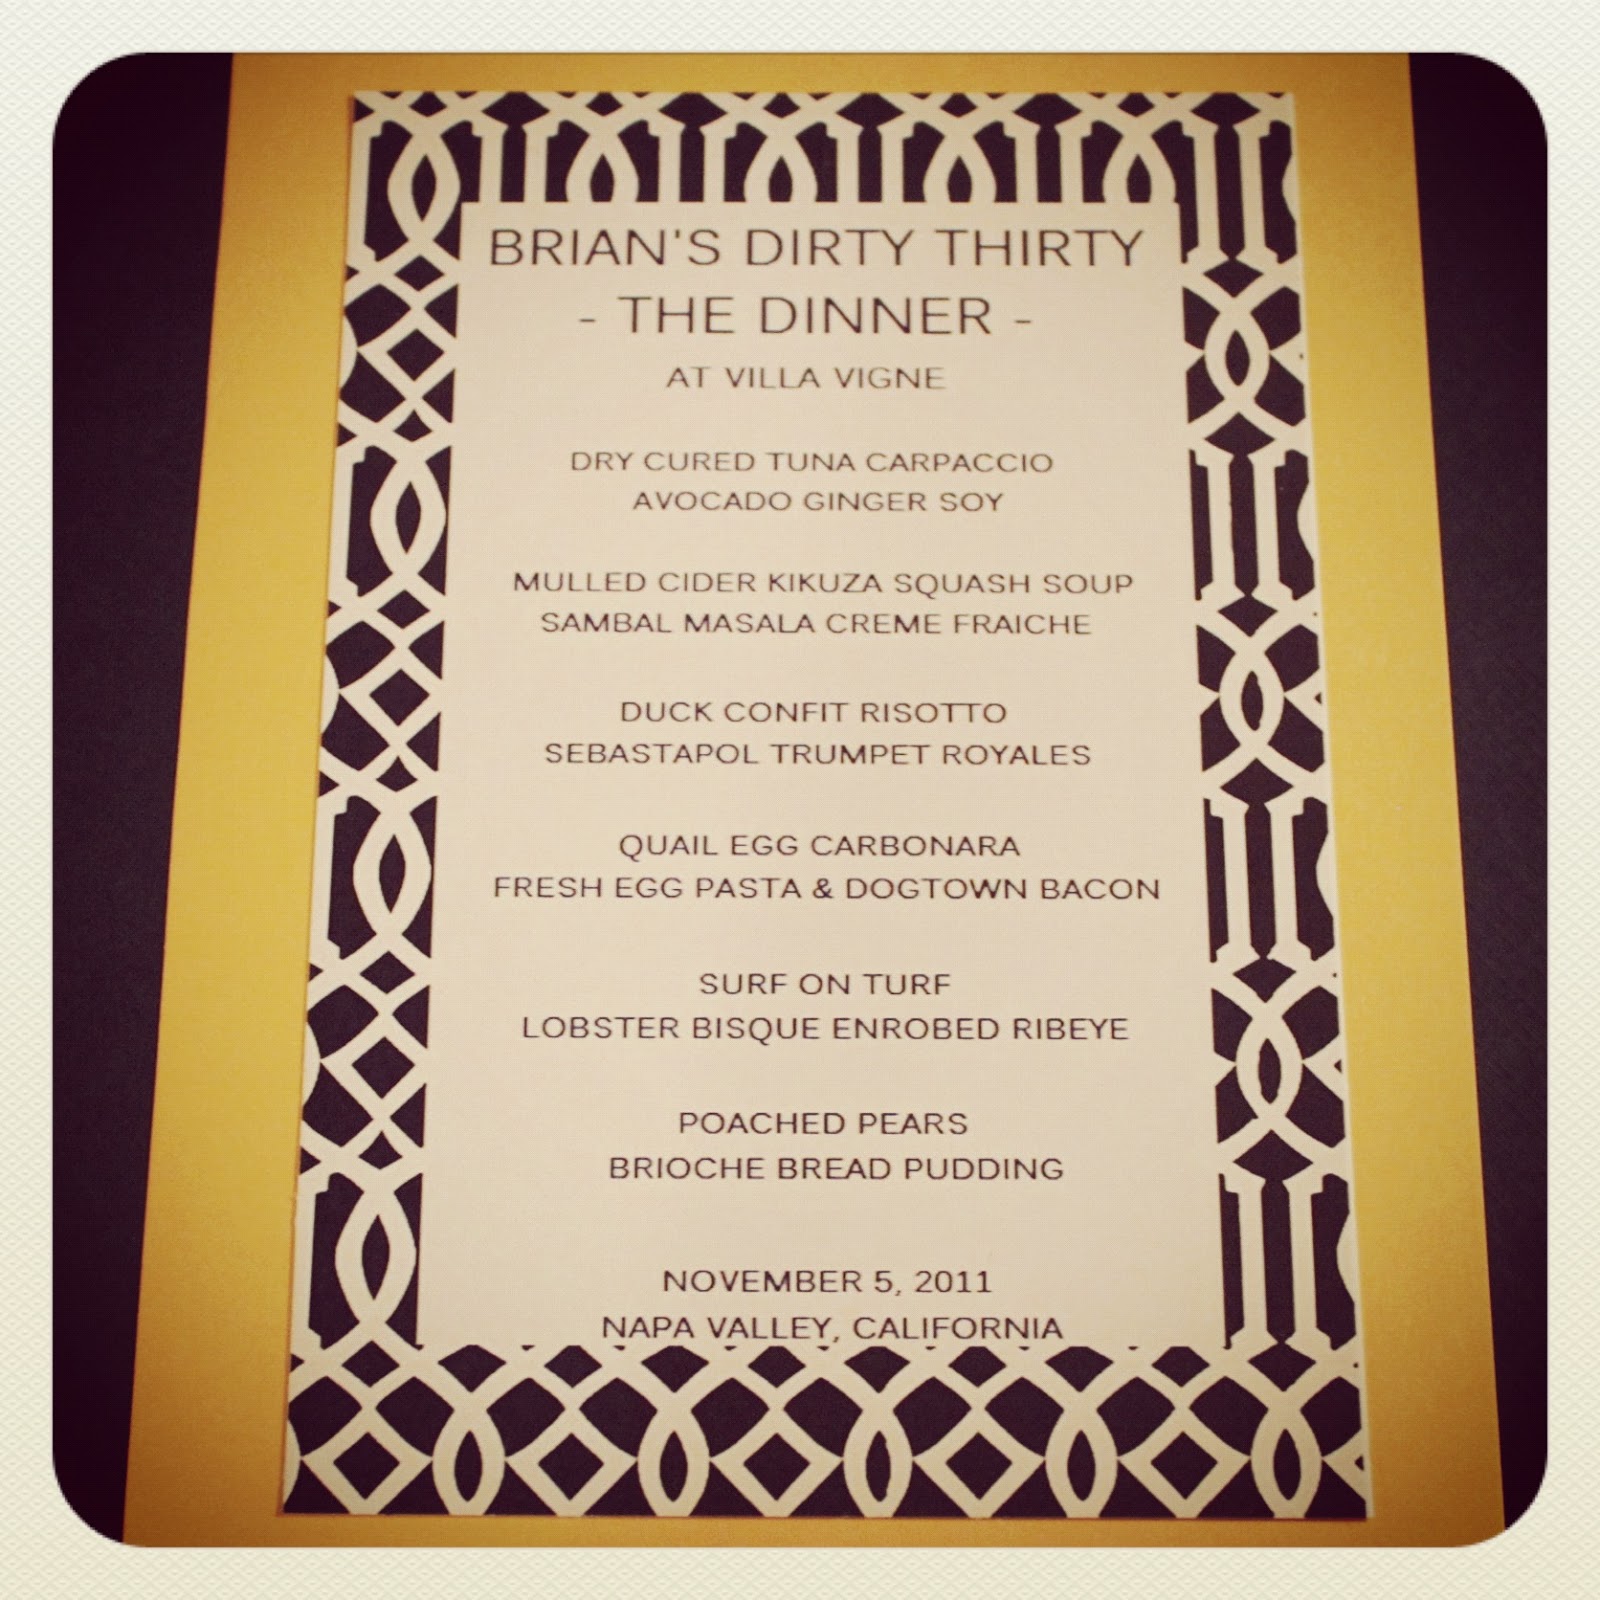 BRIAN'S DIRTY THIRTY
- THE DINNER -
AT VILLA VIGNE
DRY CURED TUNA CARPACCIO
AVOCADO GINGER SOY
MULLED CIDER KIKUZA SQUASH SOUP
SAMBAL MASALA CREME FRAICHE
DUCK CONFIT RISOTTO
SEBASTAPOL TRUMPET ROYALES
QUAIL EGG CARBONARA
FRESH EGG PASTA & DOGTOWN BACON
SURF ON TURF
LOBSTER BISQUE ENROBED RIBEYE
POACHED PEARS
BRIOCHE BREAD PUDDING
NOVEMBER 5, 2011
NAPA VALLEY, CALIFORNIA